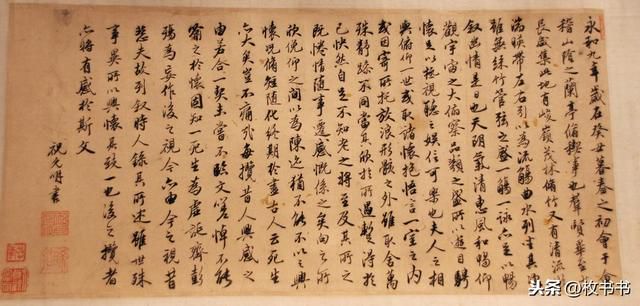 永和九年歲在癸丑暮春之初會于會
稽山陰之蘭亭脩禊事也羣賢畢至
長咸集此地有峻嶺茂林脩竹又有清流
湍映帶左右引以為流觴曲水列坐其
雖無絲竹管弦之盛一觴一詠亦足以暢
敘幽情是日也天朗氣清惠風和暢仰
觀宇宙之大俯察品類之盛所以遊目騁
懷足以極視聽之娛信可樂也夫人之相
與俯仰一世或取諸懷抱悟言一室之內
或因寄所托放浪形骸之外雖取舍萬
殊靜躁不同當其欣於所遇暫得於
己怏然自足不知老之將至及其所之
既惓情隨事遷感慨係之矣向之所
欣俛仰之間以為陳迹猶不能不以之興
懷況脩短隨化終期於盡古人云死生
亦大矣豈不痛哉每攬昔人興感之
由若合一契未嘗不臨文嗟悼不能
喻之於懷固知一死生為虛誕齊彭
殤為妄作後之視今亦由今之視昔
悲夫故列敘時人錄其所述雖世殊
事異所以興懷其致一也後之攬者
亦將有感於斯文
祝允明書
头条 @枚书书